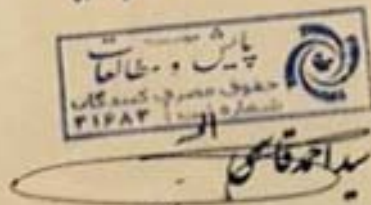 موسسه
پایش و مطالعات
حقوق مصرف کنندگان
شماره ثبت ۳۱۶۸۳
سید احمد قاسمی